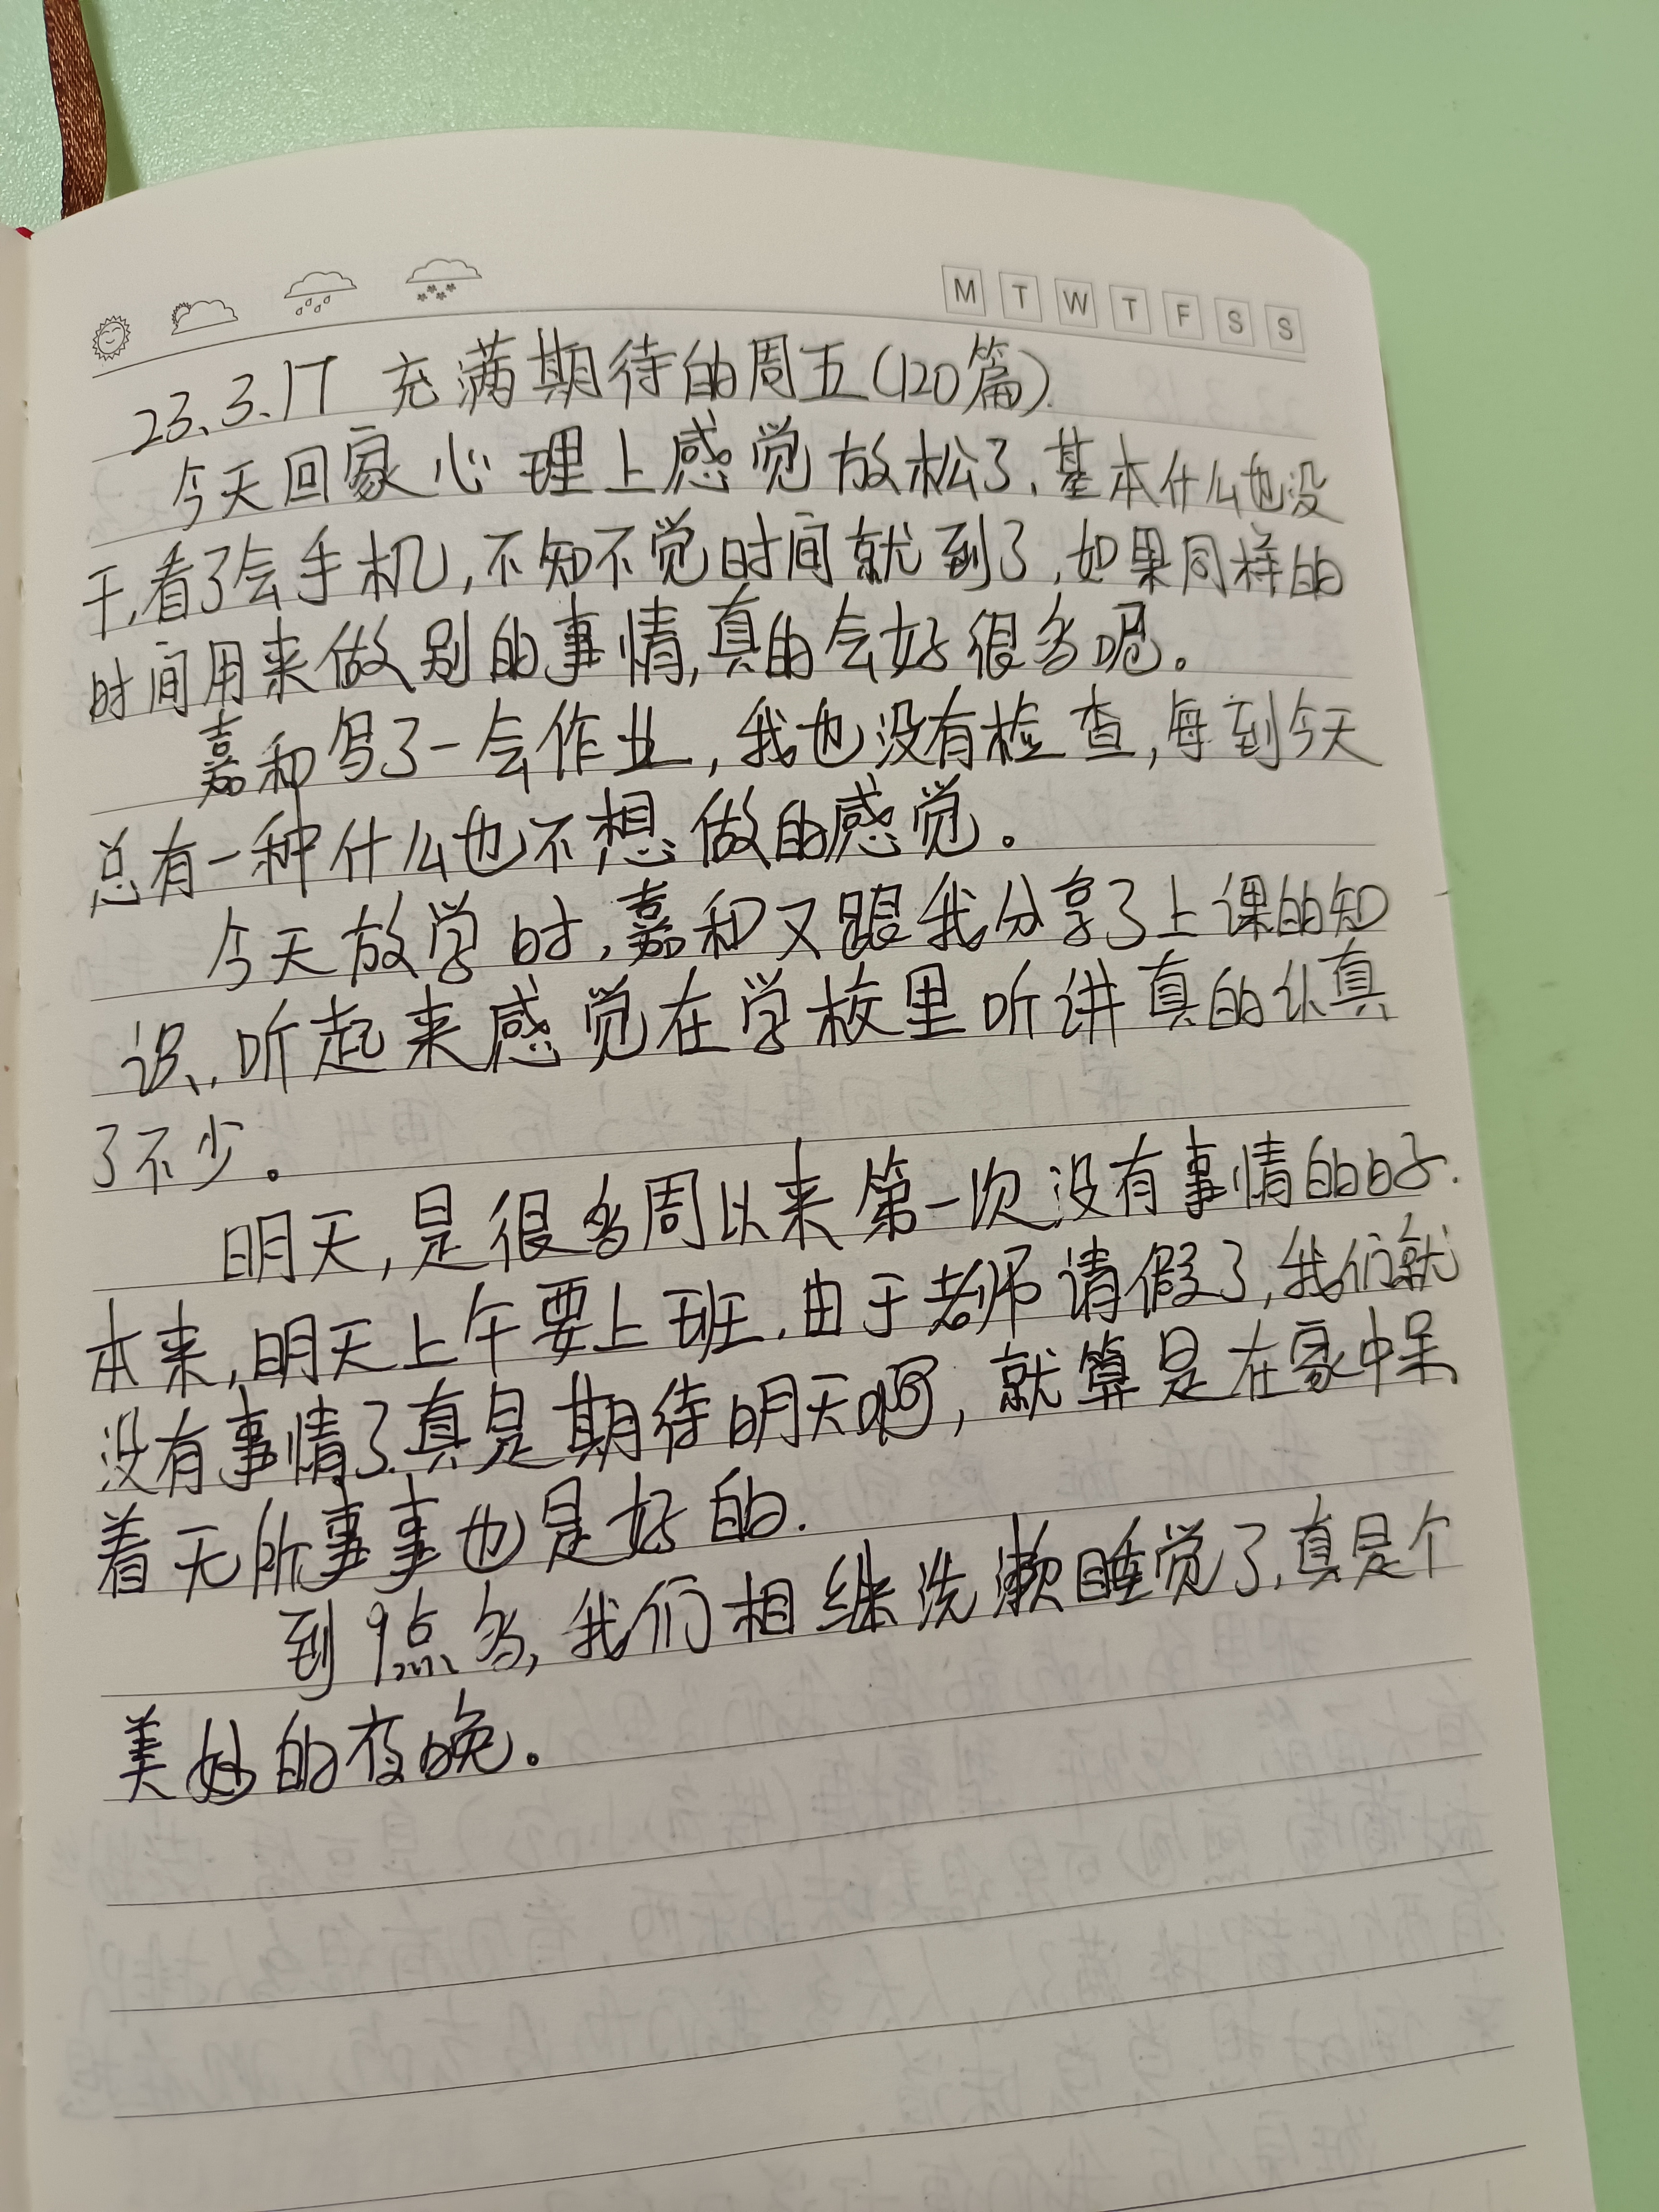 M T W T F S S
23.3.17 充满期待的周五(120篇).
今天回家心理上感觉放松了,基本什么也没
干,看了会手机,不知不觉时间就到了,如果同样的
时间用来做别的事情,真的会好很多呢。
嘉和写了一会作业,我也没有检查,每到今天
总有一种什么也不想做的感觉。
今天放学时,嘉和又跟我分享了上课的知
识,听起来感觉在学校里听讲真的认真
了不少。
明天,是很多周以来第一次没有事情的日子.
本来,明天上午要上班,由于老师请假了,我们就
没有事情了.真是期待明天啊,就算是在家中呆
着无所事事也是好的.
到9点多,我们相继洗漱睡觉了,真是个
美妙的夜晚。